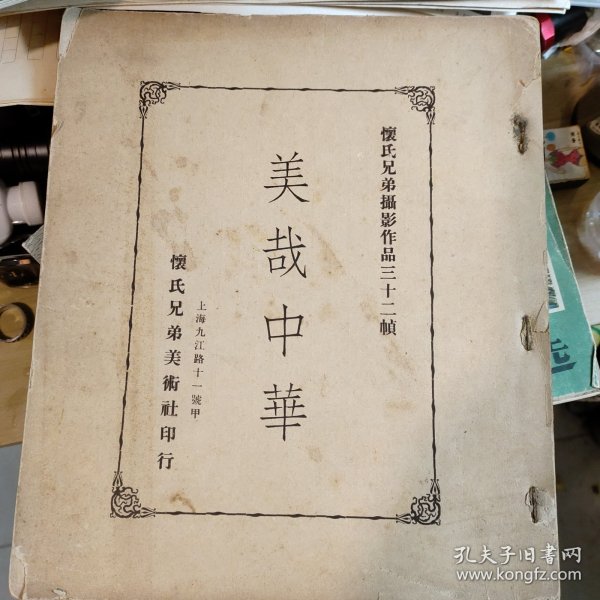 懷氏兄弟攝影作品三十二幀
美哉中華
上海九江路十一號甲
懷氏兄弟美術社印行
孔夫子旧书网
www.kongfz.com